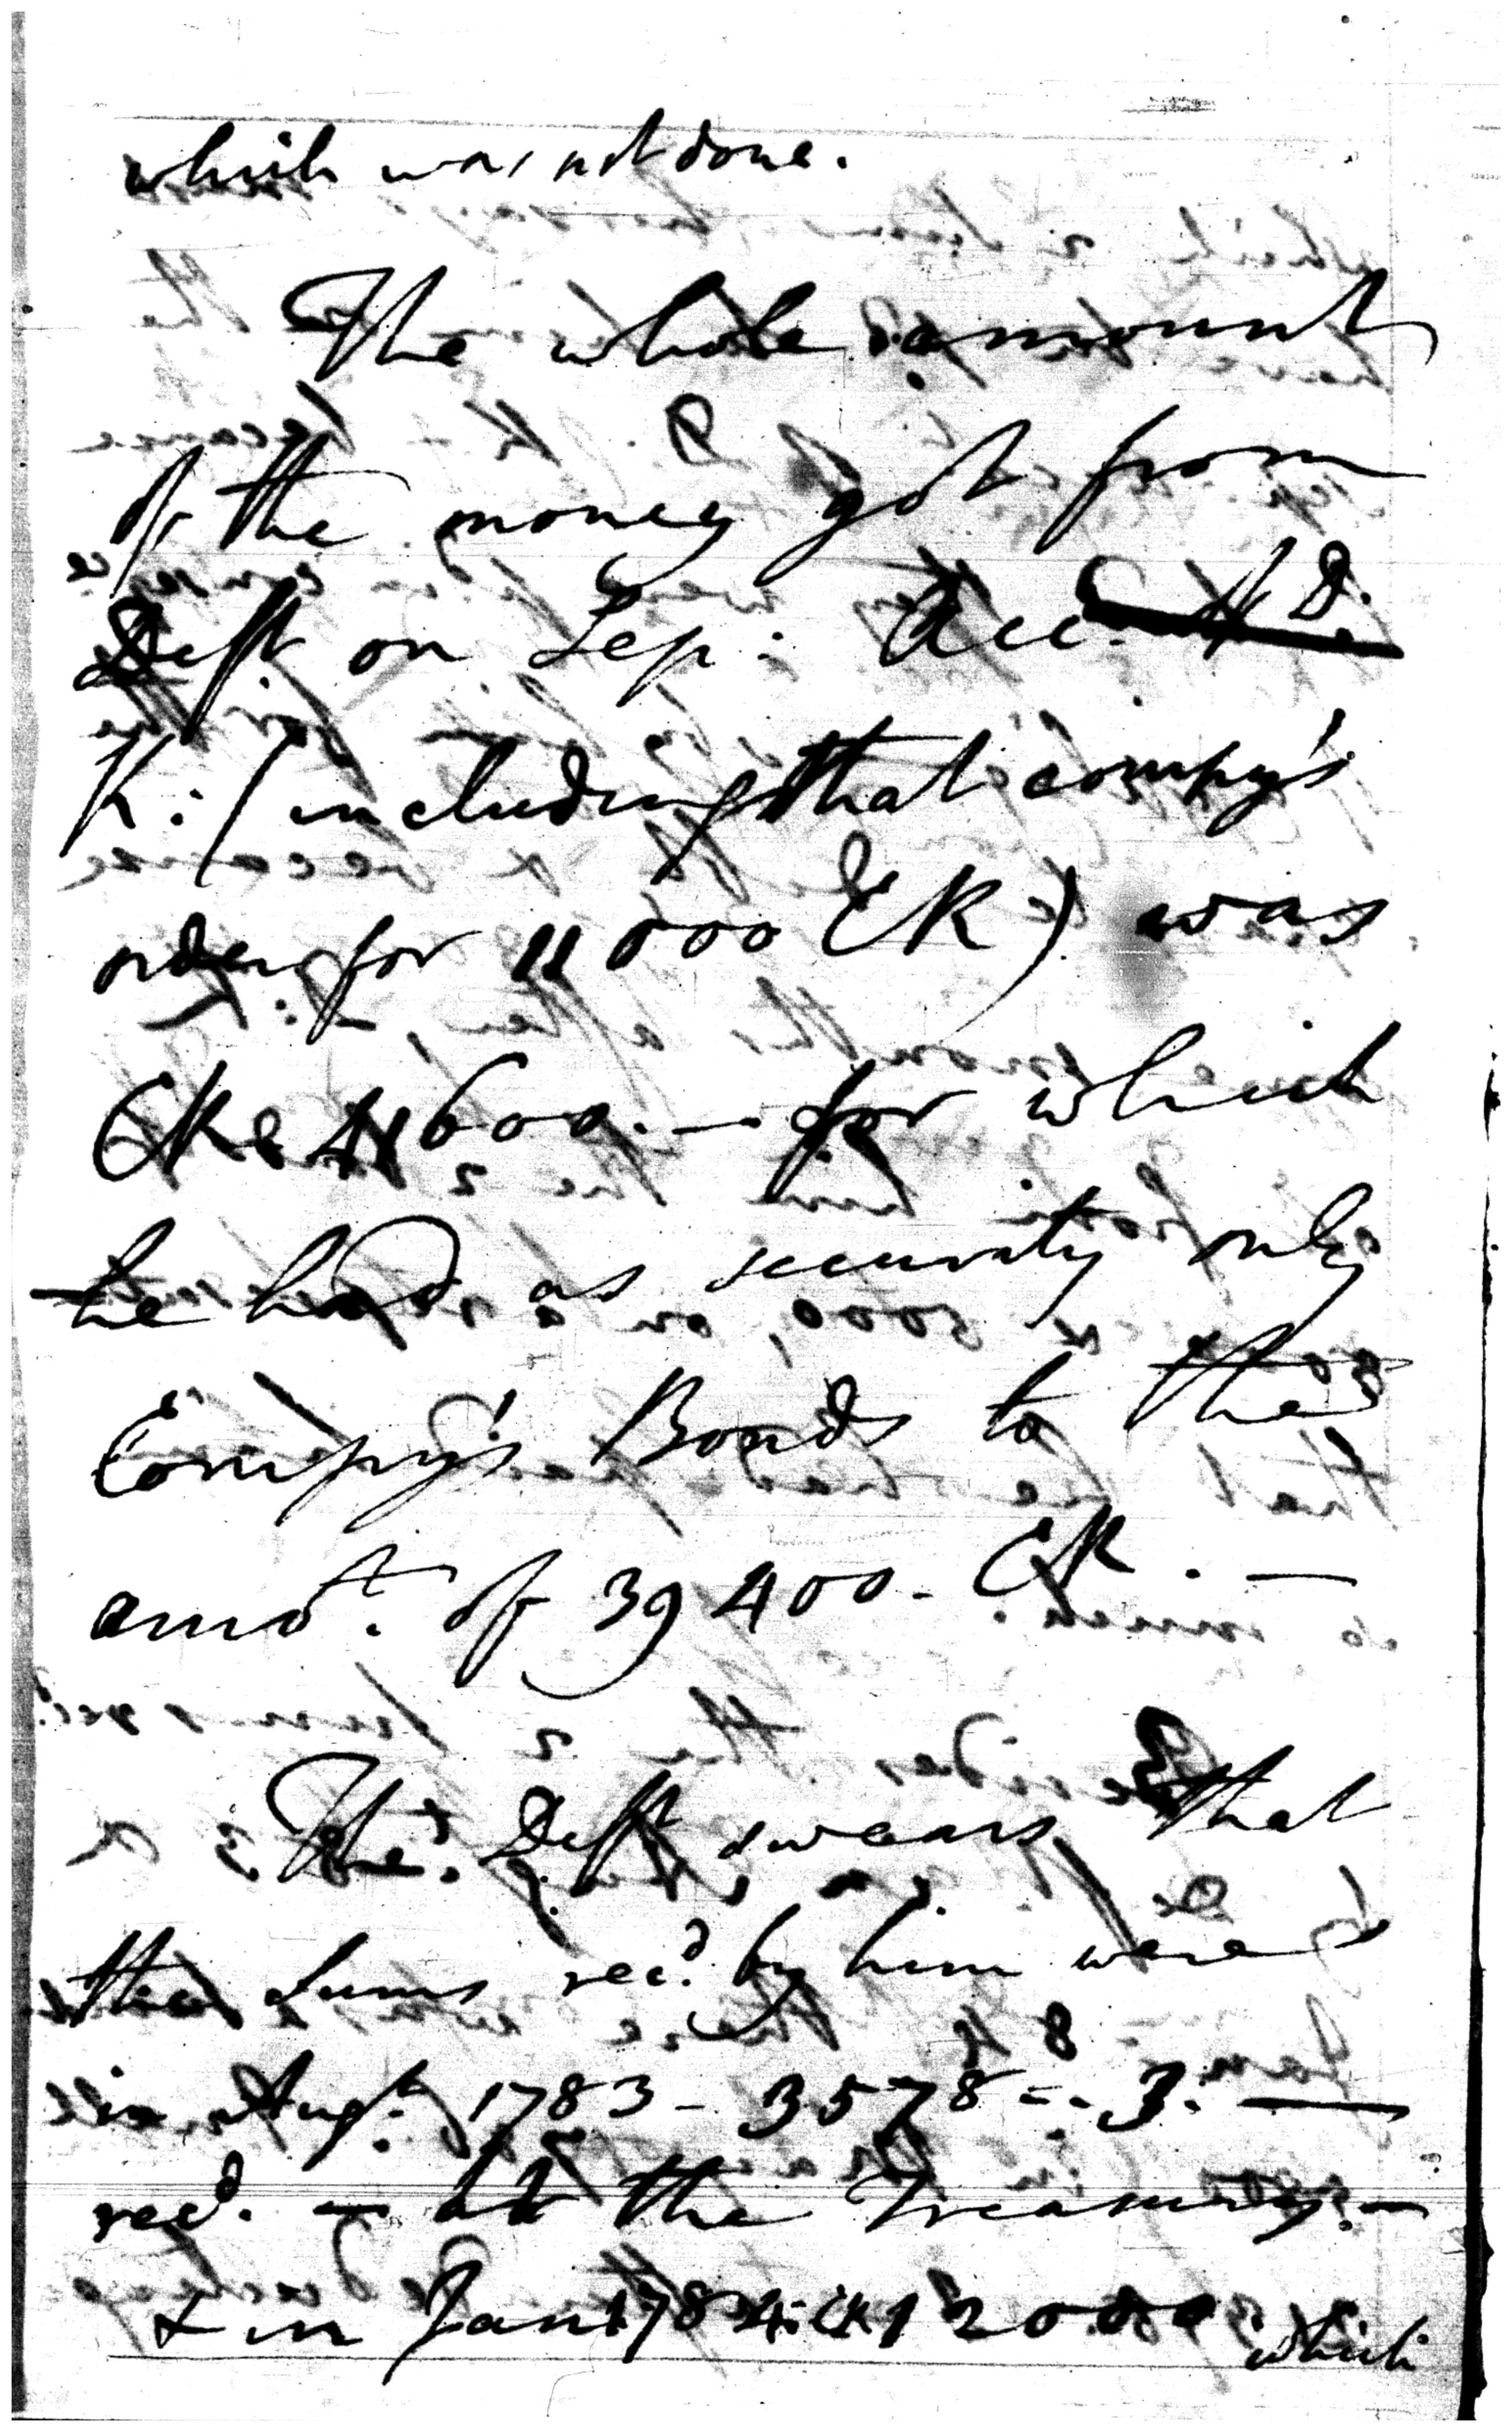 which was not done.
The whole amount
of the money got from
Deft. on Sep: Acc. D.
K: (including that compy's
order for 11 000 CR) was
CRs 41600. — for which
he had as security only
Compy's Bonds to the
amot. of 39 400 - CR. —
The Deft. swears that
the sums recd. by him were
in Augt. 1783 - 3578 = 3. —
recd. — at the Treasury. —
& in Jany 1784 CR 12000 which